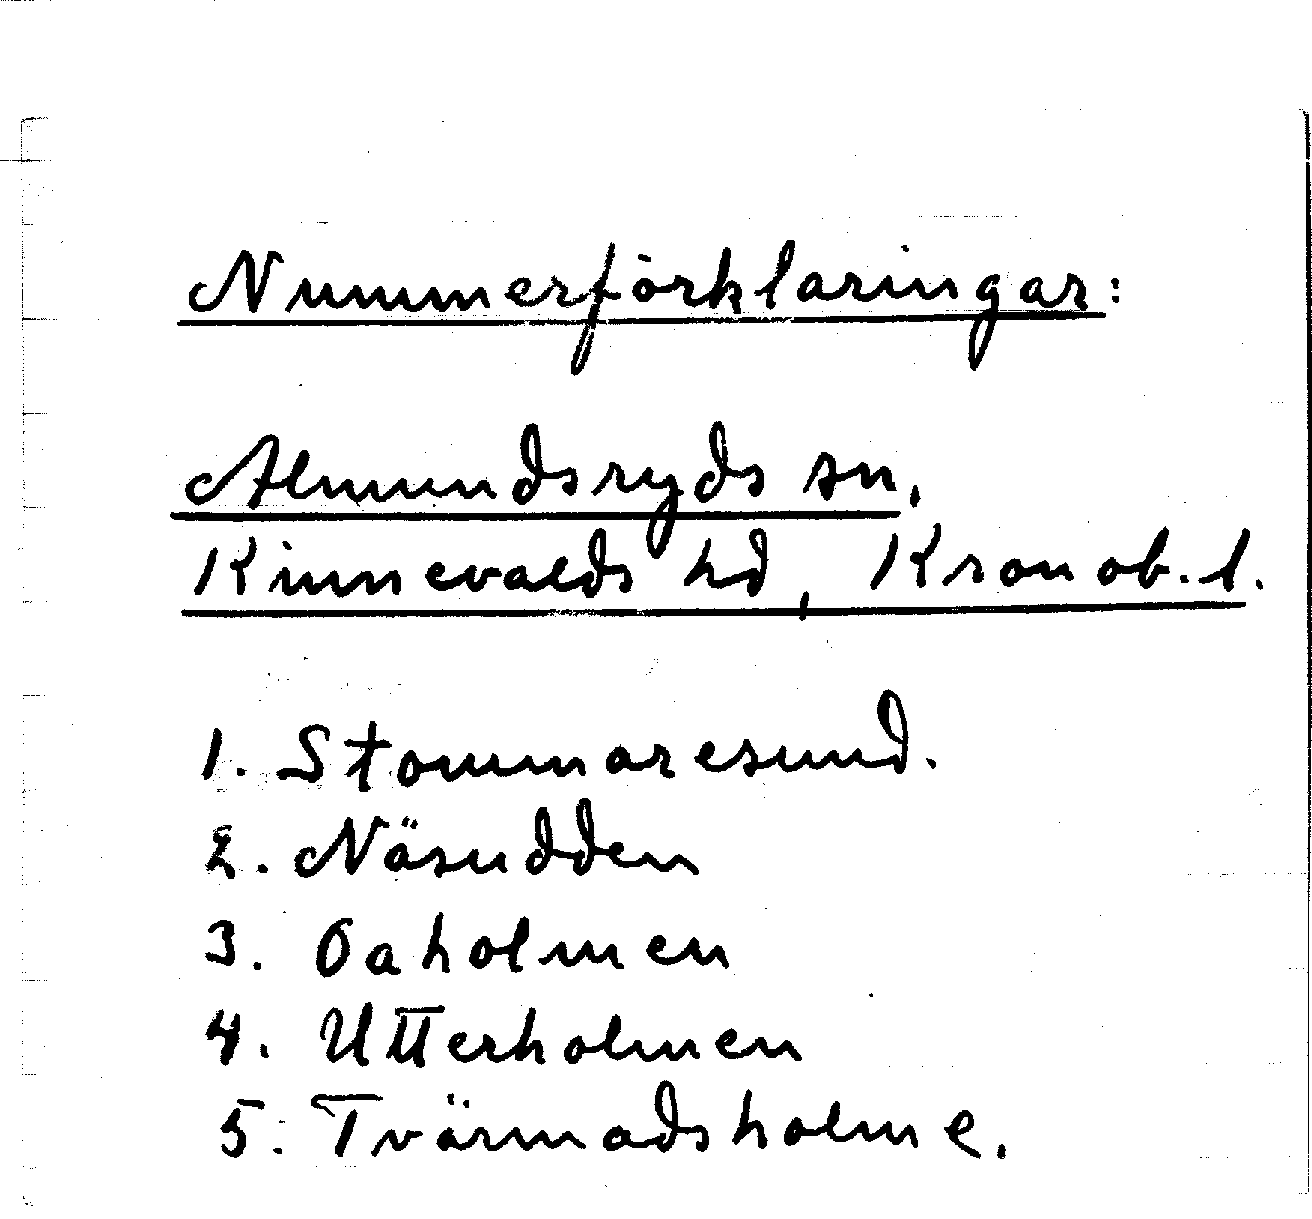 Nummerförklaringar:
Almundsryds sn,
Kinnevalds hd, Kronob. l.
1. Stommaresund.
2. Näsudden
3. Oaholmen
4. Utterholmen
5. Tvärmadsholme.